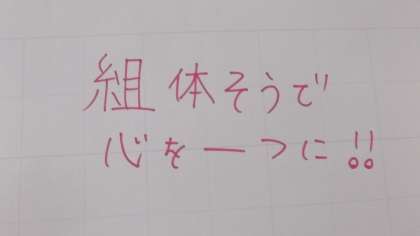 組体そうで
心を一つに!!